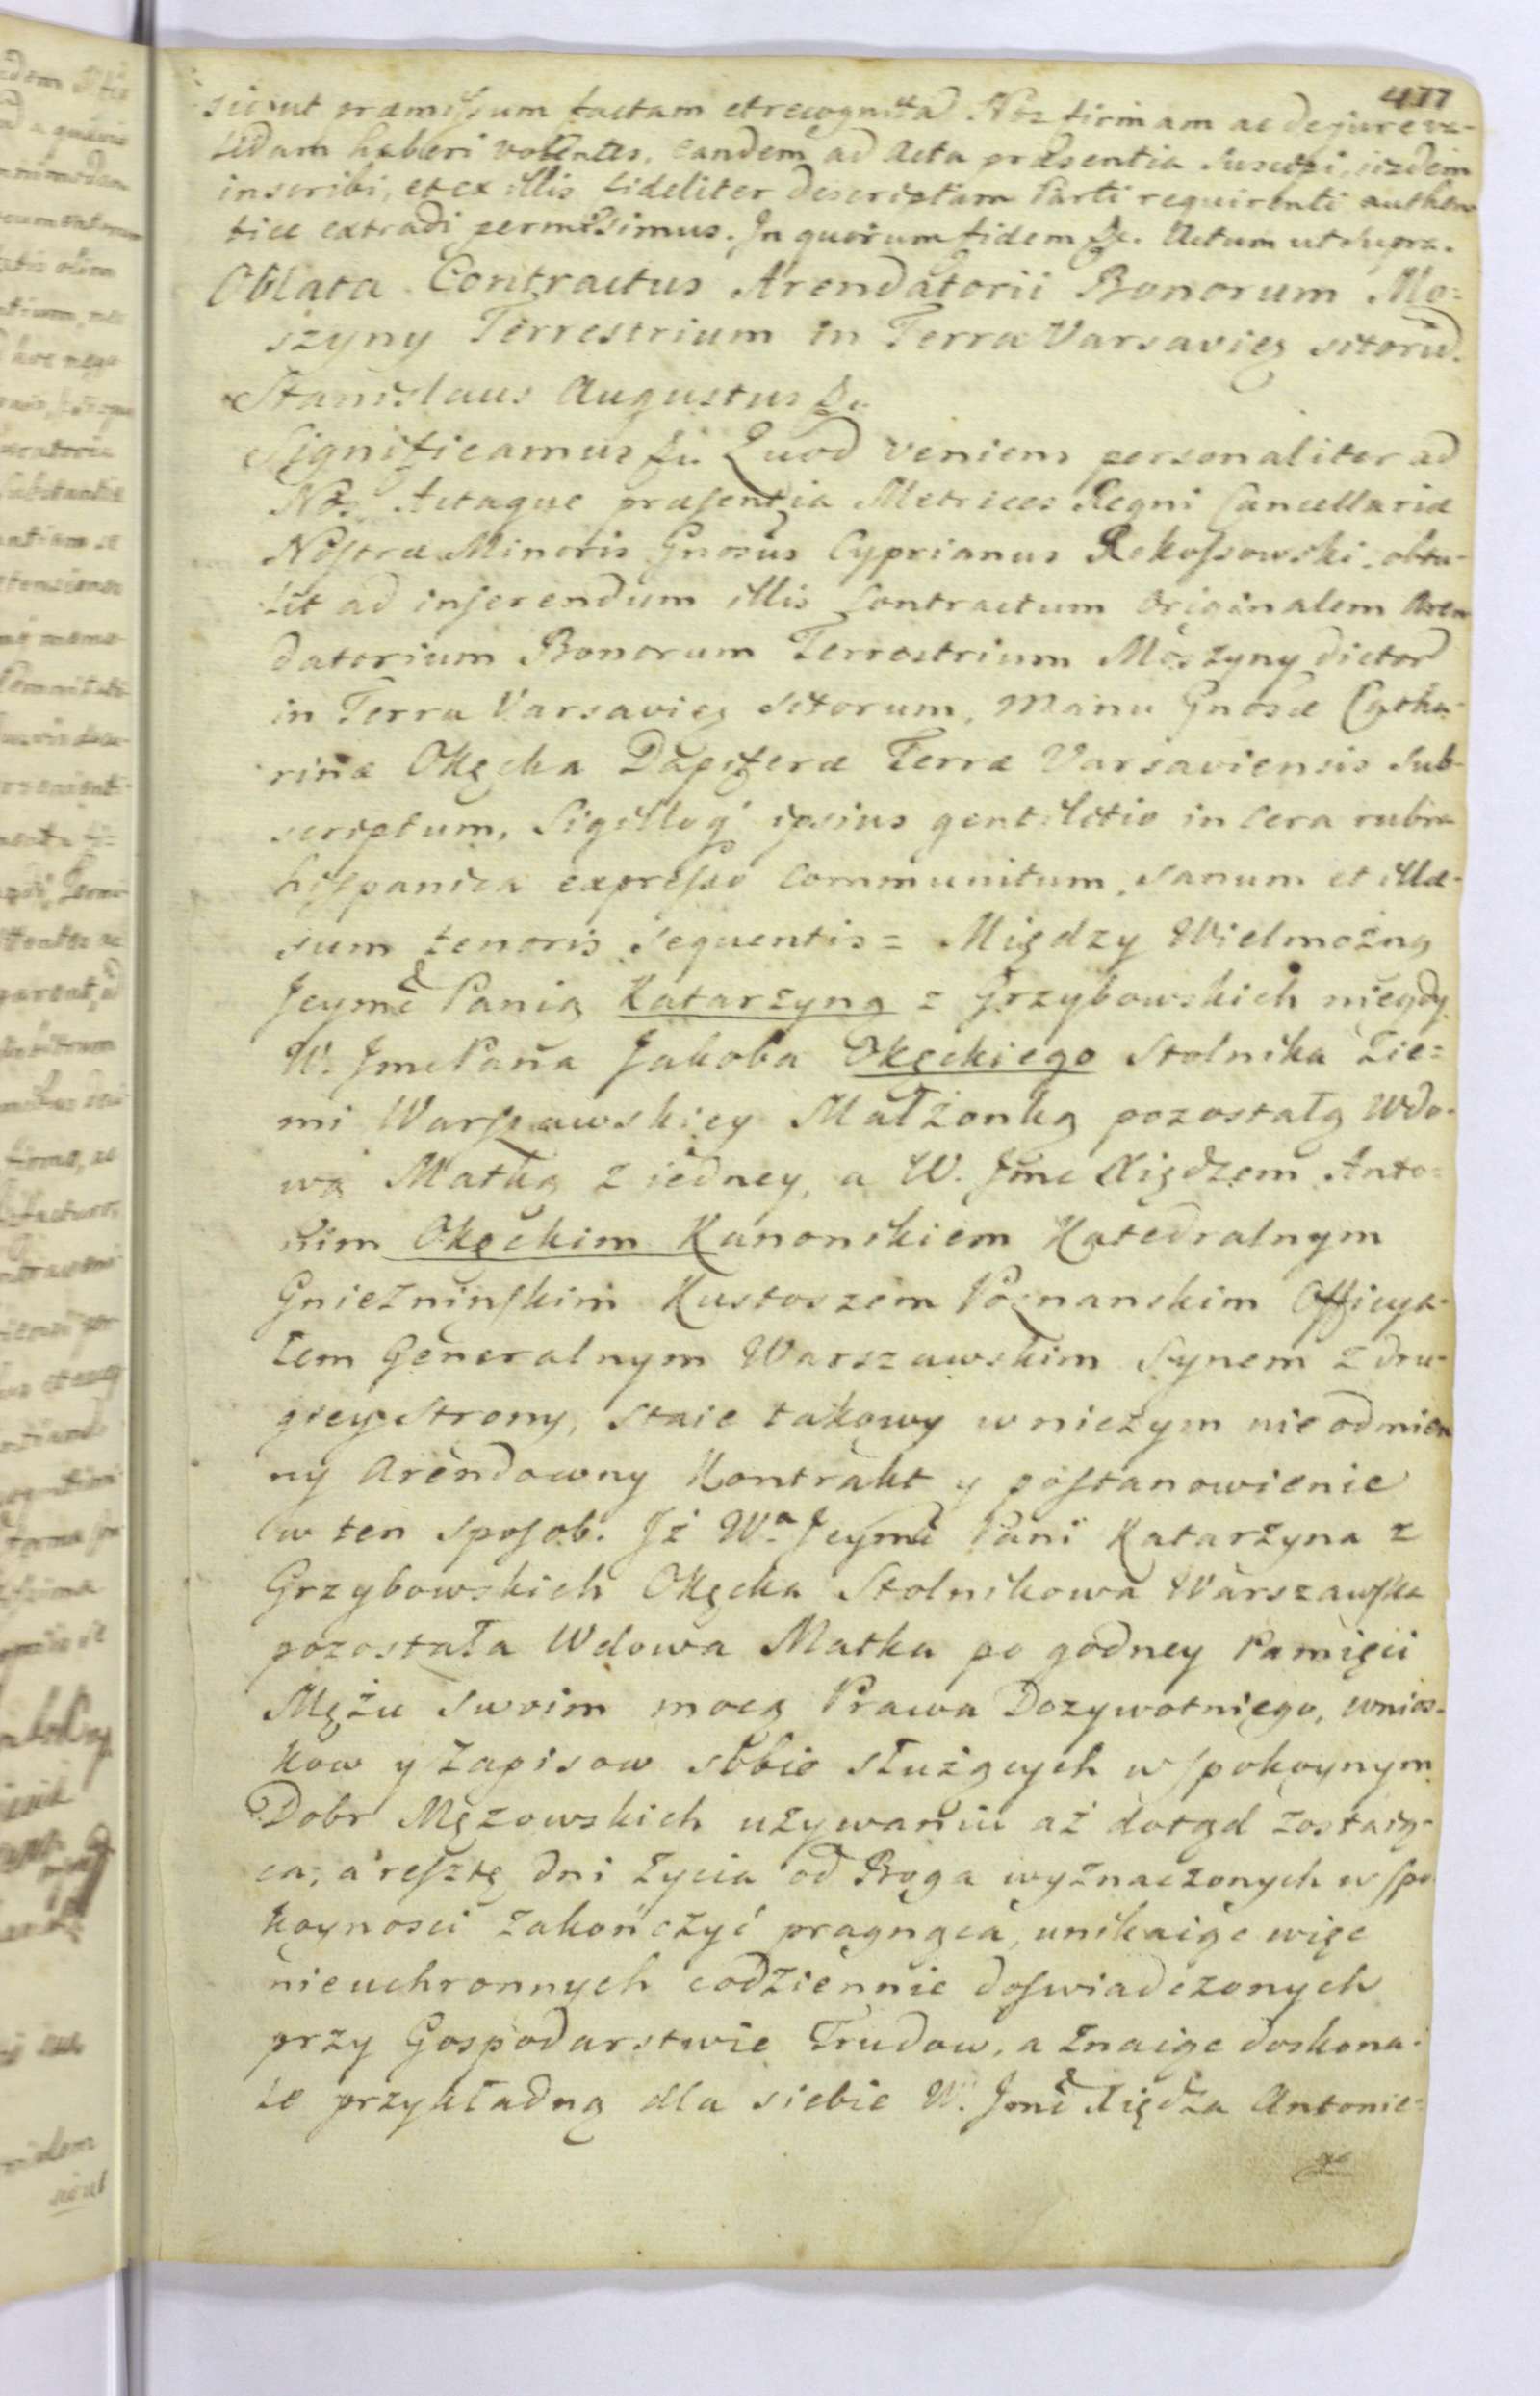 477
sicut præmissum factam et recognitã Nos firmam ac de jure va-
lidam haberi volentes, eandem ad Acta præsentia suscipi, iisdem
inscribi, et ex illis fideliter descriptam Parti requirenti authen
tice extradi permisimus. In quorum fidem &c. Actum ut supra.
Oblata Contractus Arendatorii Bonorum Mo=
szyny Terrestrium in Terra Varsavieñ sitorũ.
Stanislaus Augustus &c.
Significamus &c. Quod veniens personaliter ad
Nos Actaque præsentia Metrices Regni Cancellariæ
Nostræ Minoris Gnosus Cyprianus Rokossowski, obtu-
lit ad inserendum illis Contractum Originalem Aren
datorium Bonorum Terrestrium Moszyny dictorũ
in Terra Varsavieñ sitorum, Manu Gnosæ Catha-
rinæ Okęcka Dapiferæ Terræ Varsaviensis sub-
scriptum, Sigilloq́ ipsius gentilitio in Cera rubra
hispanica expresso communitum, sanum et illæ-
sum tenoris sequentis = Między Wielmożną
Jeymć Panią Katarzyną z Grzybowskich niegdy
W. Jmć Pana Jakoba Okęckiego Stolnika Zie=
mi Warszawskiey Małżonką pozostałą Wdo-
wą Matką z iedney, a W. Jmć Xiędzem Anto=
nim Okęckim Kanonikiem Katedralnym
Gnieznińskim Kustoszem Poznanskim Officya-
łem Generalnym Warszawskim Synem z dru-
giey Strony, staie takowy w niczym nie odmien
ny Arendowny Kontrakt y postanowienie
w ten sposob. Iż Wa Jeymć Pani Katarzyna z
Grzybowskich Okęcka Stolnikowa Warszawska
pozostała Wdowa Matka po godney Pamięci
Mężu swoim mocą Prawa Dozywotniego, wnios-
kow y Zapisow sobie służących w spokoynym
Dobr Mężowskich używaniu aż dotąd zostaią-
ca, a resztę dni życia od Boga wyznaczonych w spo
koynosci zakończyć pragnąca, unikaiąc więc
nieuchronnych codziennie doswiadczonych
przy Gospodarstwie Trudow, a znaiąc doskona-
le przykładną dla siebie W. Jmć Xiędza Antonie=
go